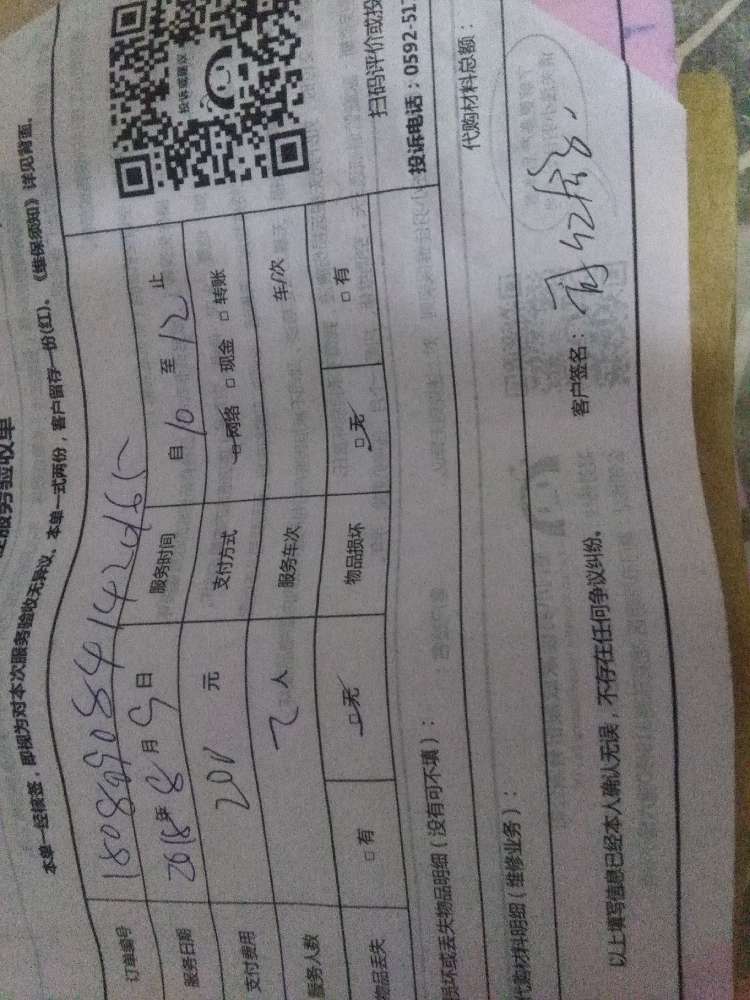 服务验收单
本单一经核签，即视为对本次服务验收无异议、本单一式两份，客户留存一份(红)、《维保须知》详见背面。
订单编号
服务日期 2018年8月9日 服务时间 自10至12止
支付费用 200 元 支付方式 □网络 □现金 □转账
服务人数 2人 服务车次 车/次
物品丢失 □有 □无 物品损坏 □无 □有
损坏或丢失物品明细（没有可不填）：
代购材料明细（维修业务）： 代购材料总额：
以上填写信息已经本人确认无误，不存在任何争议纠纷。 客户签名：
投诉或建议
扫码评价或投
投诉电话：0592-517